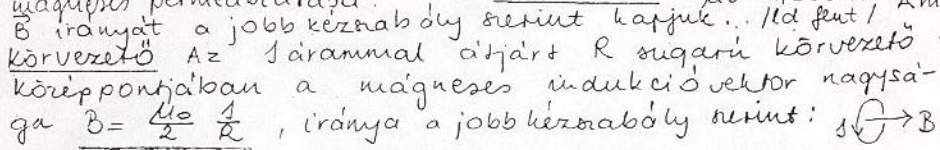 mágneses permeabilitása.
B irányát a jobbkézszabály szerint kapjuk... /ld fent/ Am
körvezető Az I árammal átjárt R sugarú körvezető
középpontjában a mágneses indukcióvektor nagysá-
ga B = μ₀/2 I/R , iránya a jobbkézszabály szerint: I B